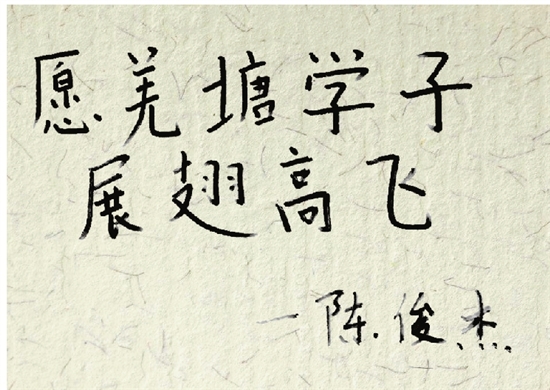 愿羌塘学子
展翅高飞
—陈俊杰